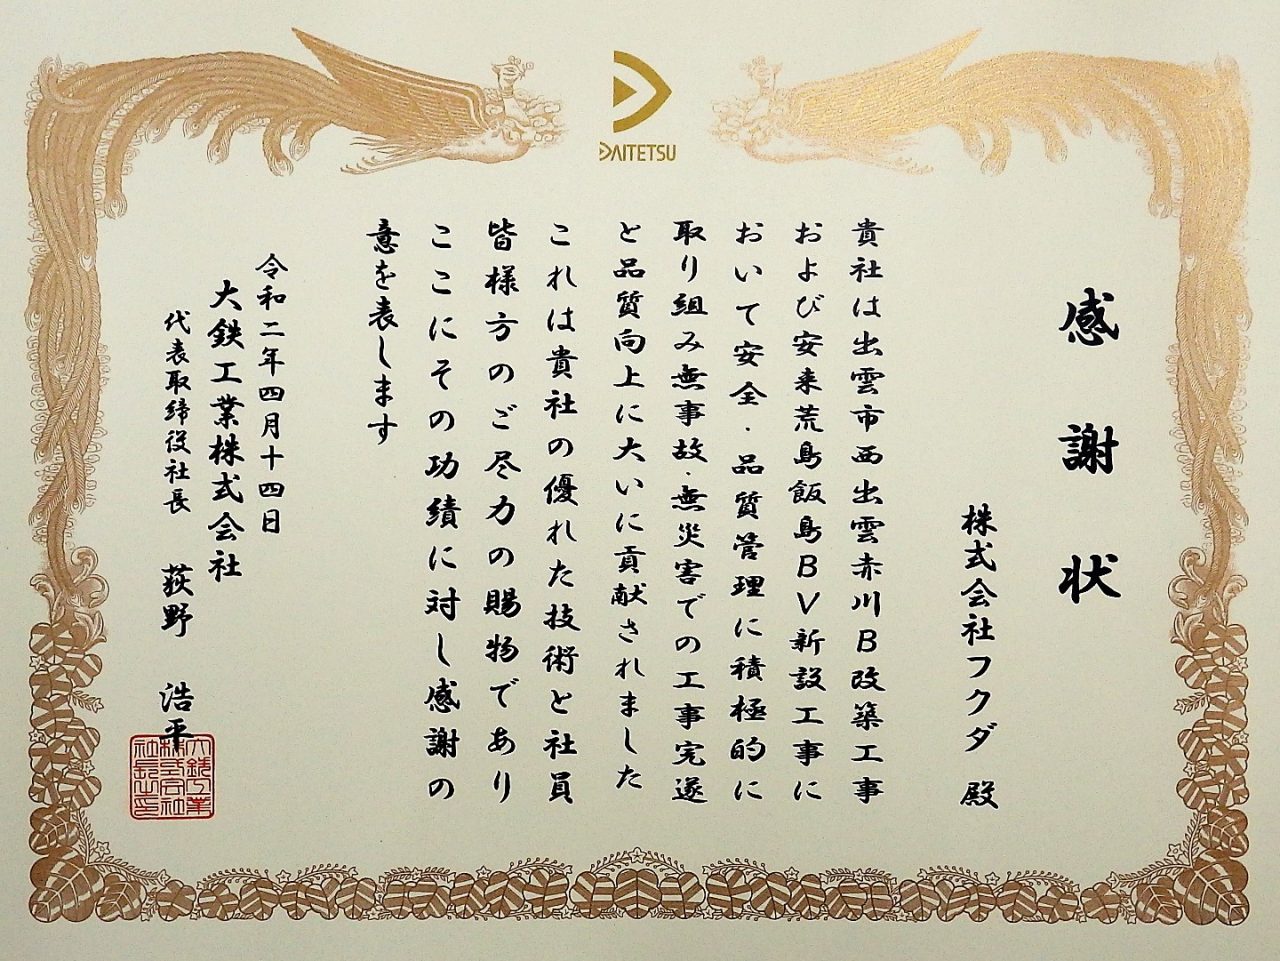 DAITETSU
感謝状
株式会社フクダ 殿
貴社は出雲市西出雲赤川B改築工事
および安来荒島飯島BV新設工事に
おいて安全・品質管理に積極的に
取り組み無事故・無災害での工事完遂
と品質向上に大いに貢献されました
これは貴社の優れた技術と社員
皆様方のご尽力の賜物であり
ここにその功績に対し感謝の
意を表します
令和二年四月十四日
大鉄工業株式会社
代表取締役社長 荻野 浩平
大鉄工業
株式会社
社長之印